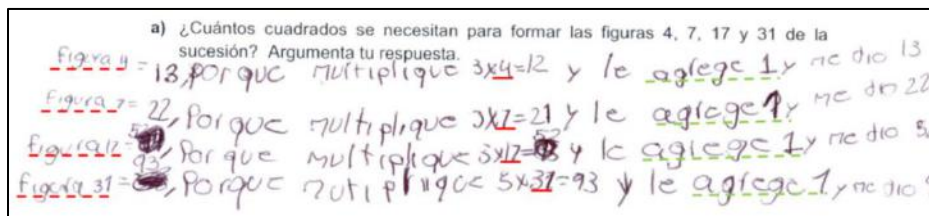 a) ¿Cuántos cuadrados se necesitan para formar las figuras 4, 7, 17 y 31 de la
sucesión? Argumenta tu respuesta.
Figura 4 = 13, porque multiplique 3x4=12 y le agrege 1 y me dio 13
Figura 7 = 22, Porque multiplique 3x7=21 y le agrege 1, y me dio 22
Figura 17 = 52, Porque multiplique 3x17= y le agrege 1 y me dio
Figura 31 = 93, Porque multiplique 3x31=93 y le agrege 1, y me dio